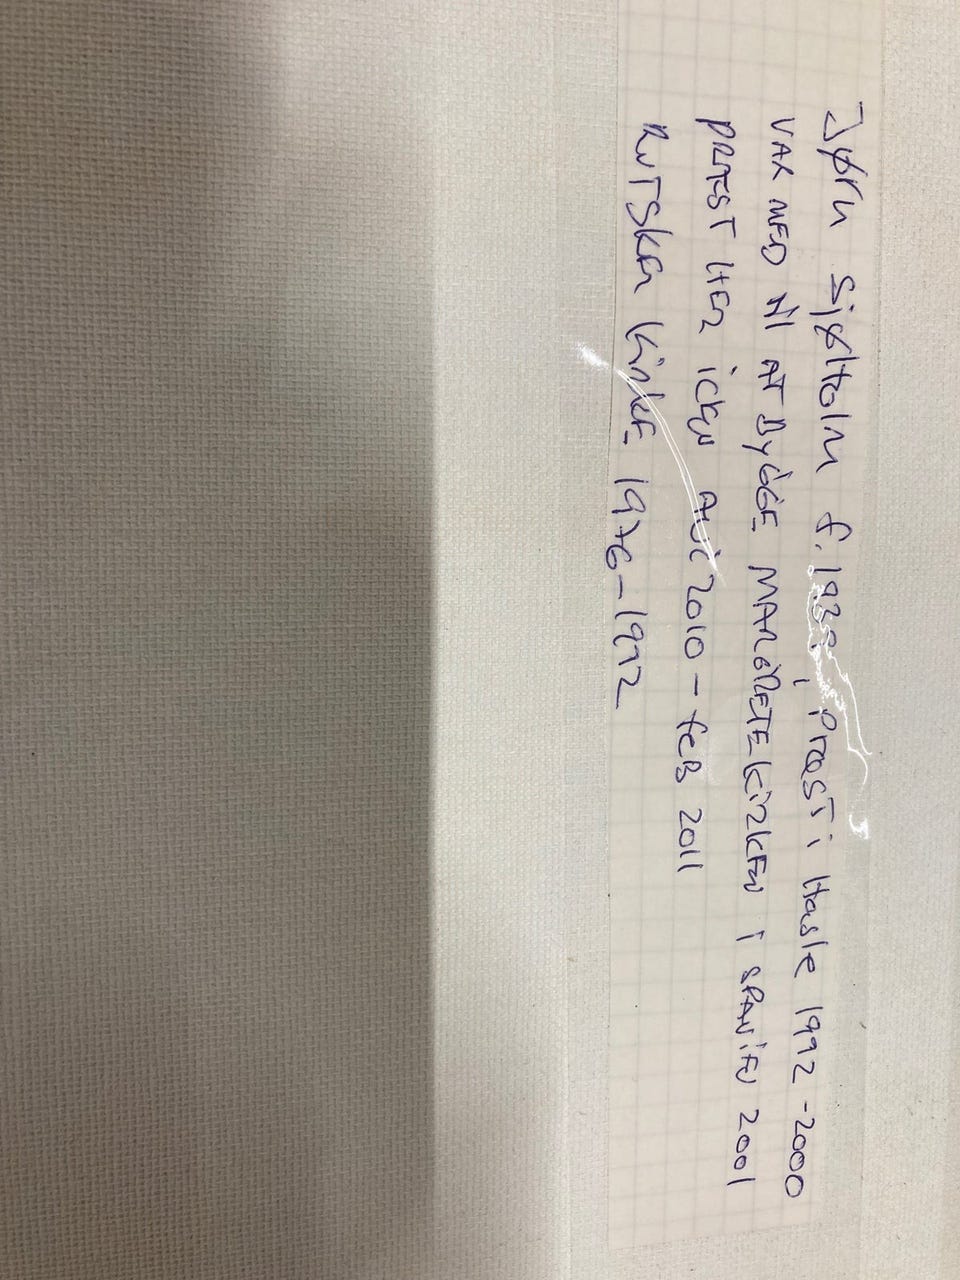 Jørn Sjøholm f. , Præst i Hasle 1992-2000
VAR MED TIL AT BYGGE MARGRETEKIRKEN I SPANIEN 2001
PRÆST HER IGEN AUG 2010 - FEB 2011
RUTSKER KIRKE 1976-1992